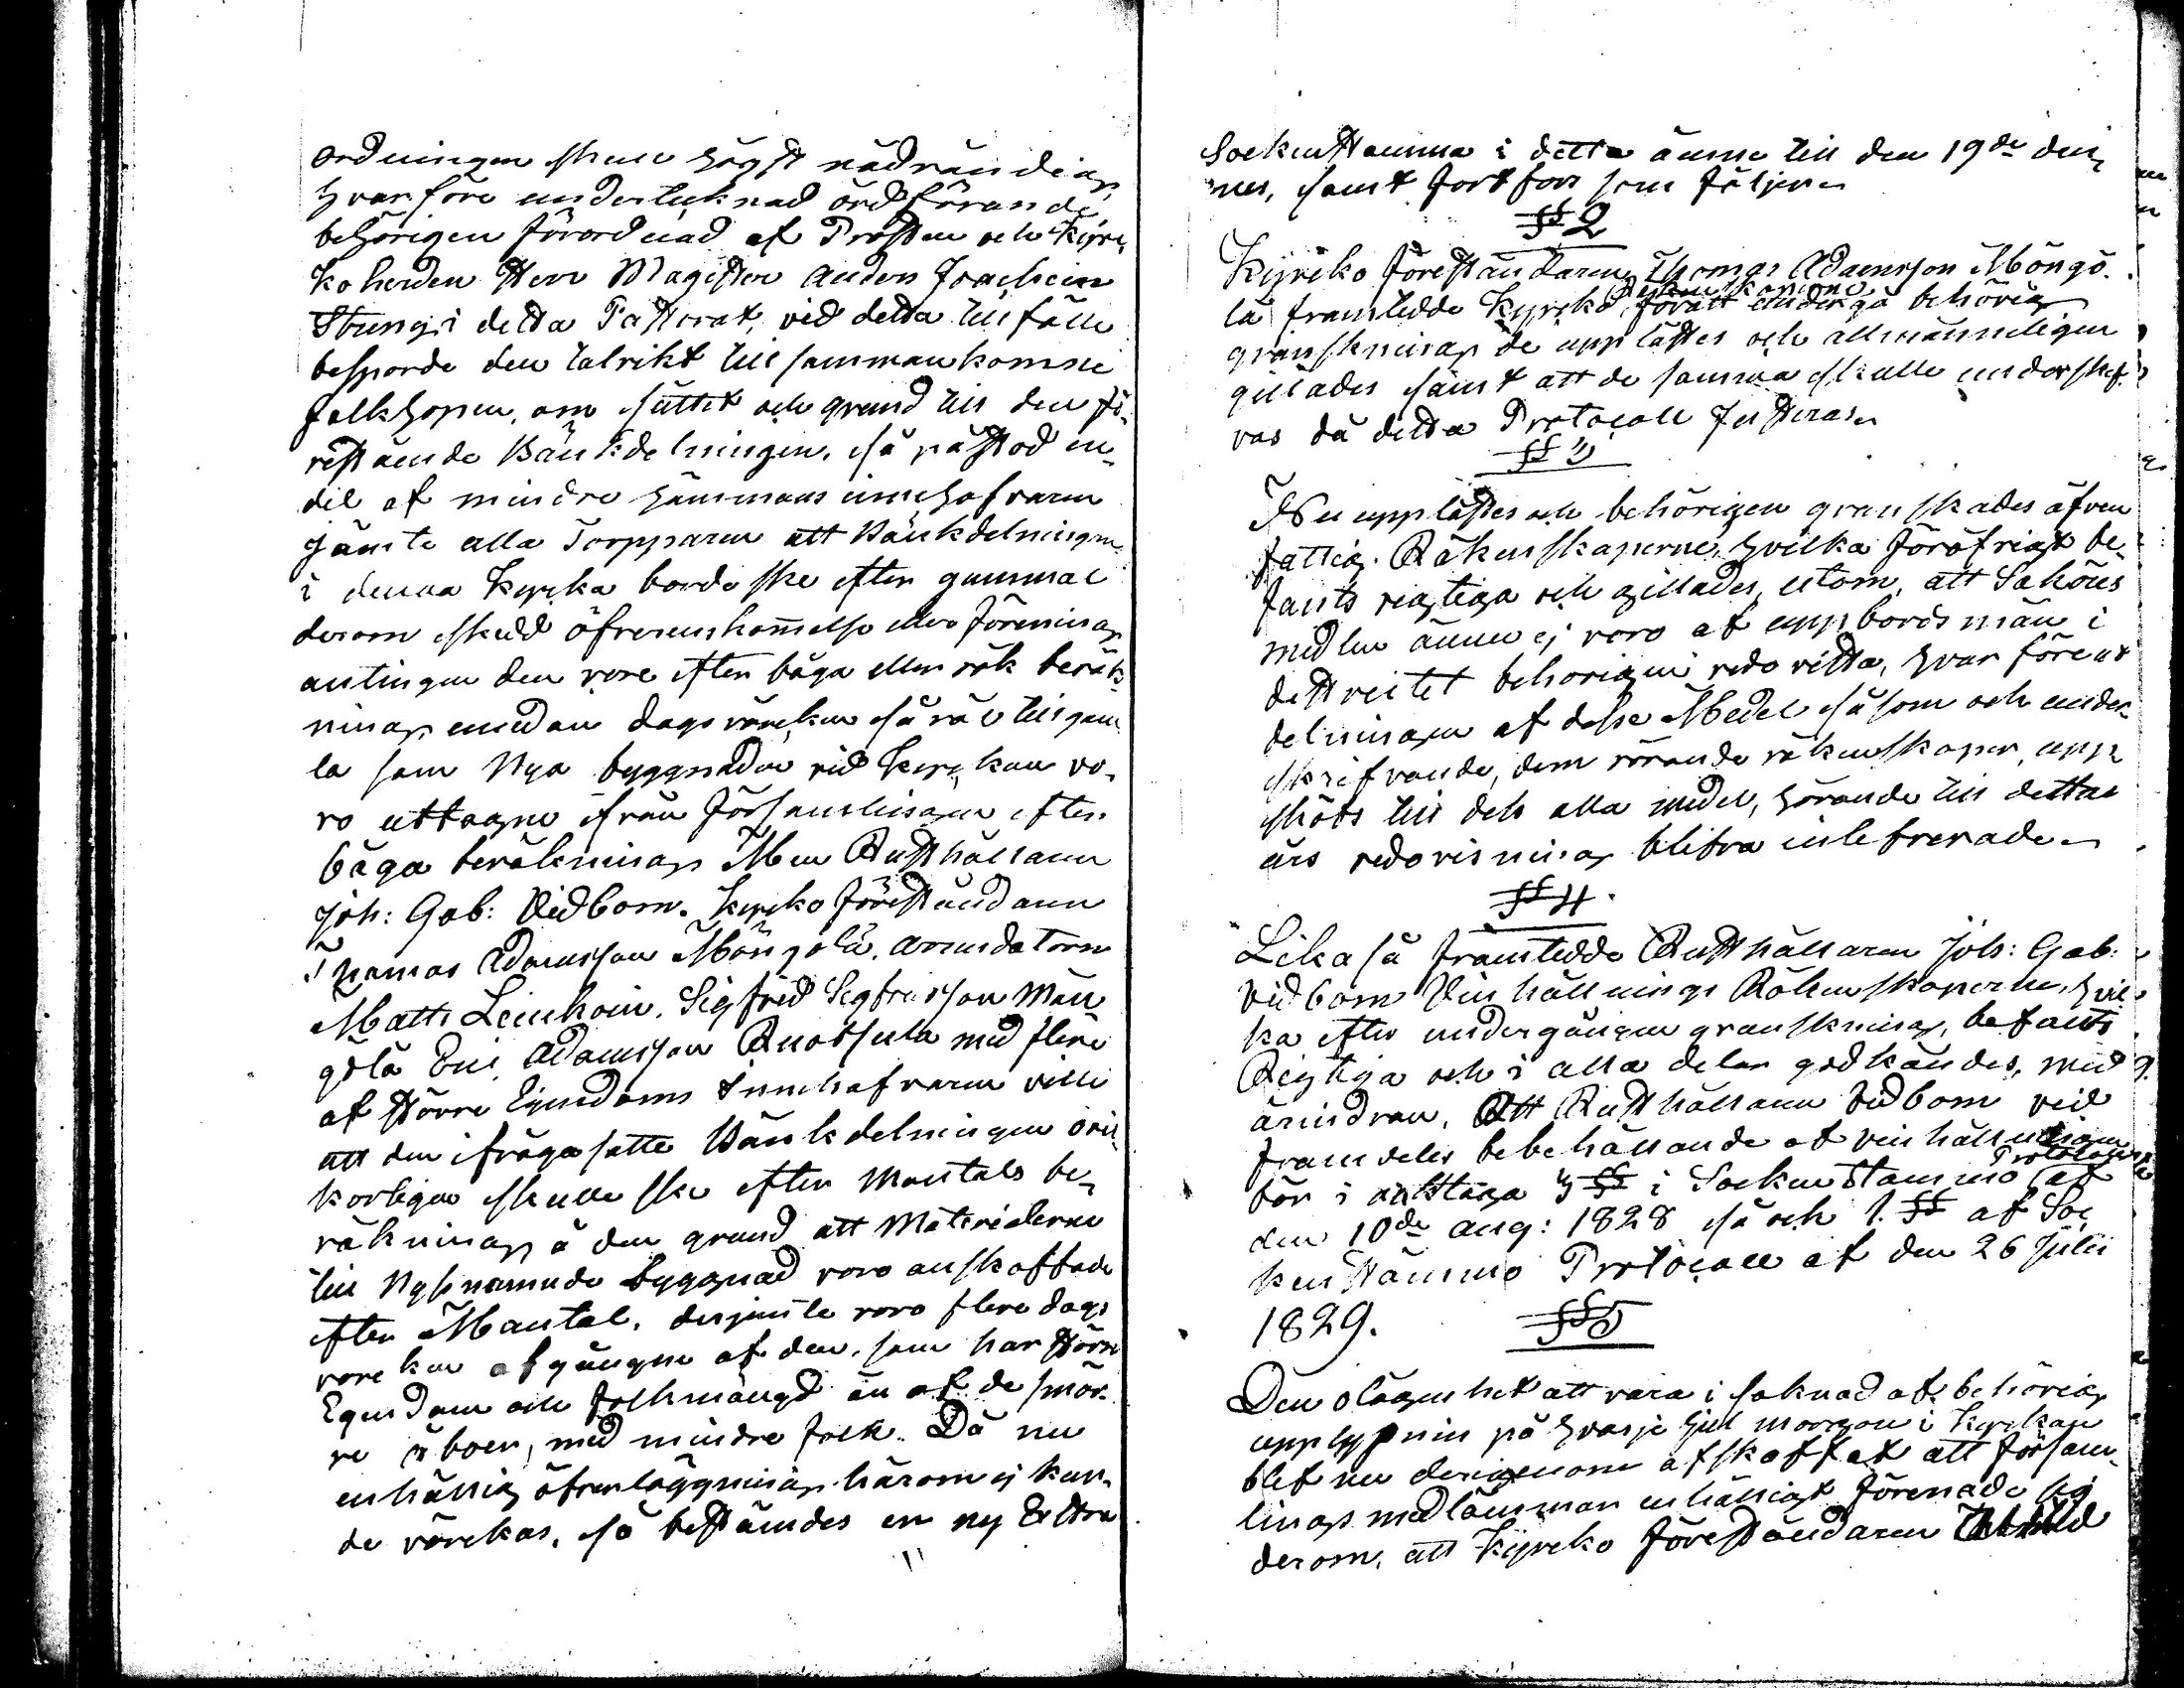 ordningen skulle högst nödvändig,
hvarföre undertecknad ordförande
behörigen förordnad af Prosten och Kyr¬
koherden Herr Magister Anders Joachim
Strengs i detta Pastorat, vid detta tillfälle
besporde den talrikt till sammankomne
folkhopen, om sättet och grund till den fö¬
restående Bänkdelningen, så påstod en
del af mindre hemmans innehafvaren
jämte alla Torpparen att Bänkdelningen
i denna Kyrka borde ske efter gammal
derom skedd öfverenskommelse eller förening
antingen den vore efter båga eller rök beräk¬
ning emedan dagsvärcken så väl till gam
la som Nya byggnader vid Kyrkan vo¬
ro uttagne ifrån församlingen efter
båga beräkning Men Rusthållaren
Joh: Gab: Vidbom. Kyrko föreståndaren
Thomas Adamsson Mångölä, arrendatorn
Matts Leinhoin, Sigfrid Sigfridsson Mån
gölä Eric Adamsson Ruotsula med flere
af större Egendoms Innehafvaren ville
att den ifrågasatte Bänkdelningen ovil¬
korligen skulle ske efter Mantals be¬
räkning å den grund att Materialerne
till Nyssnämnde byggnad voro anskaffade
efter Mantal, desjemte voro flere dags
vercken afgångne af dem, som har större
Egendom och folkmängd än af de smär
re åboer, med mindre folk. Då nu
enhällig öfverläggning härom ej kun¬
de värckas, så bestämdes en ny Extra
Sockenstämma i detta ämne till den 19de den¬
nes, samt fortfors som följer
§§ 2
Kyrko föreståndaren Thomas Adamsson Mångö¬
Räkenskaperne
lä framledde Kyrko föratt undergå behörig
granskning de upplästes och allmänneligen
gillades samt att de samma skulle underskrif
vas då detta Protocoll Justeras
§§ 3
Nu upplästes och behörigen granskades äfven
fattig Räkenskaperne, hvilka föröfrigt be¬
fants rigtiga och gillades, utom, att Saköres
medlen ännu ej voro af uppbordsmän i
destrictet behorigen redovista, hvarföre ut
delningen af desse Medel såsom och under¬
skrifvande, dem rörande räkenskaper, upp¬
skôts till dess alla medel, hörande till detta
års redovisning blifva inlefvererade
§§ 4.
Lika så framledde Rusthållaren Joh: Gab:
Vidbom Vinhållnings Räkenskaperne, hvil
ka efter undergången granskning, befants
Rigtiga och i alla delar godkändes, med
ärindran, Att Rusthållaren Vidbom vid
framdeles bebehållande af vinhållningen
Protocoll
bör i akttaga 4 §§ i Sockenstämmo af
den 10de aug: 1828 så och 1. §§ af Soc
kenstämmo Protocoll af den 26 Julii
1829.
§§ 5
Den olägenhet att vara i saknad af behörig
upplysnin på hvarje Jul morgon i Kyrkan
blef nu derigenom afskaffat att försam¬
lings medlämmar enhälligt förenade sig
derom, att Kyrko föreståndaren